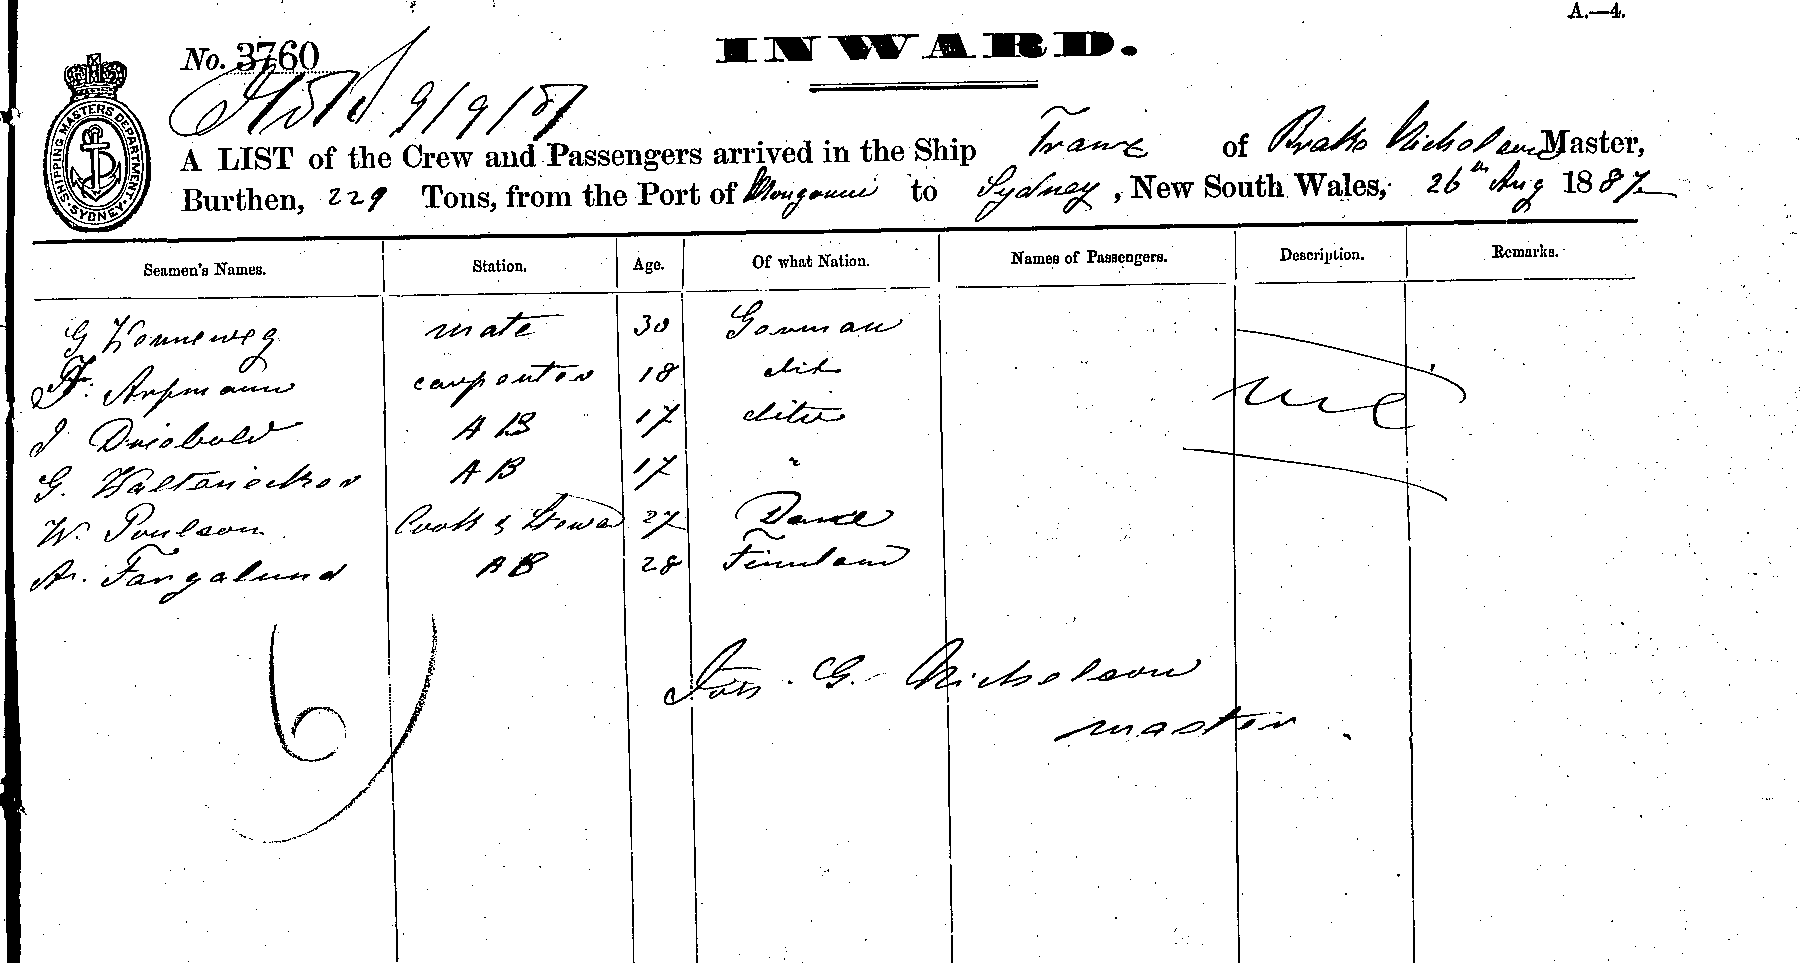 A.—4.
INWARD.
No. 3760
9/9/87
SHIPPING MASTERS DEPARTMENT SYDNEY
A LIST of the Crew and Passengers arrived in the Ship Franz of Brake Nicholson Master,
Burthen, 229 Tons, from the Port of to Sydney, New South Wales, 26th Aug 1887
Seamen's Names. Station. Age. Of what Nation. Names of Passengers. Description. Remarks.
G mate 30 German
F. Arpmann carpenter 18 dit
J AB 17 ditto
G. AB 17 "
W. Poulson Cook & Stewa 27 Dane
A. Fargalund AB 28 Finnland
nil
6
Joh. G. Nicholson
master.